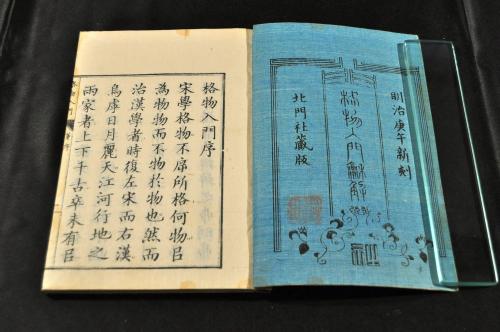 明治庚午新刻
格物入門龢解
北門社藏版
格物入門序
宋學格物不㡿所格何物㠯
為物物而不物於物也然而
治漢學者時復左宋而右漢
烏虖日月麗天江河行地之
兩家者上下千古卒未有㠯